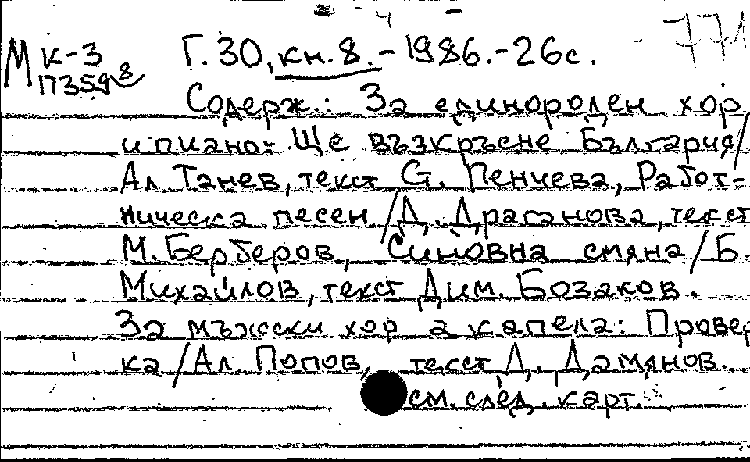 М к-3 Г. 30, кн. 8. - 1986. - 26 с. 771
173598
Содерж.: За еднороден хор
и пиано: Ще възкръсне България/
Ал. Танев, текст С. Пенчева, Работ-
ническа песен/Д. Драганова, текст
М. Берберов, Синовна смяна/Б.
Михайлов, текст Дим. Бозаков.
За мъжски хор а капела: Провер-
ка/Ал. Попов, текст Д. Дамянов.
см. след. карт.